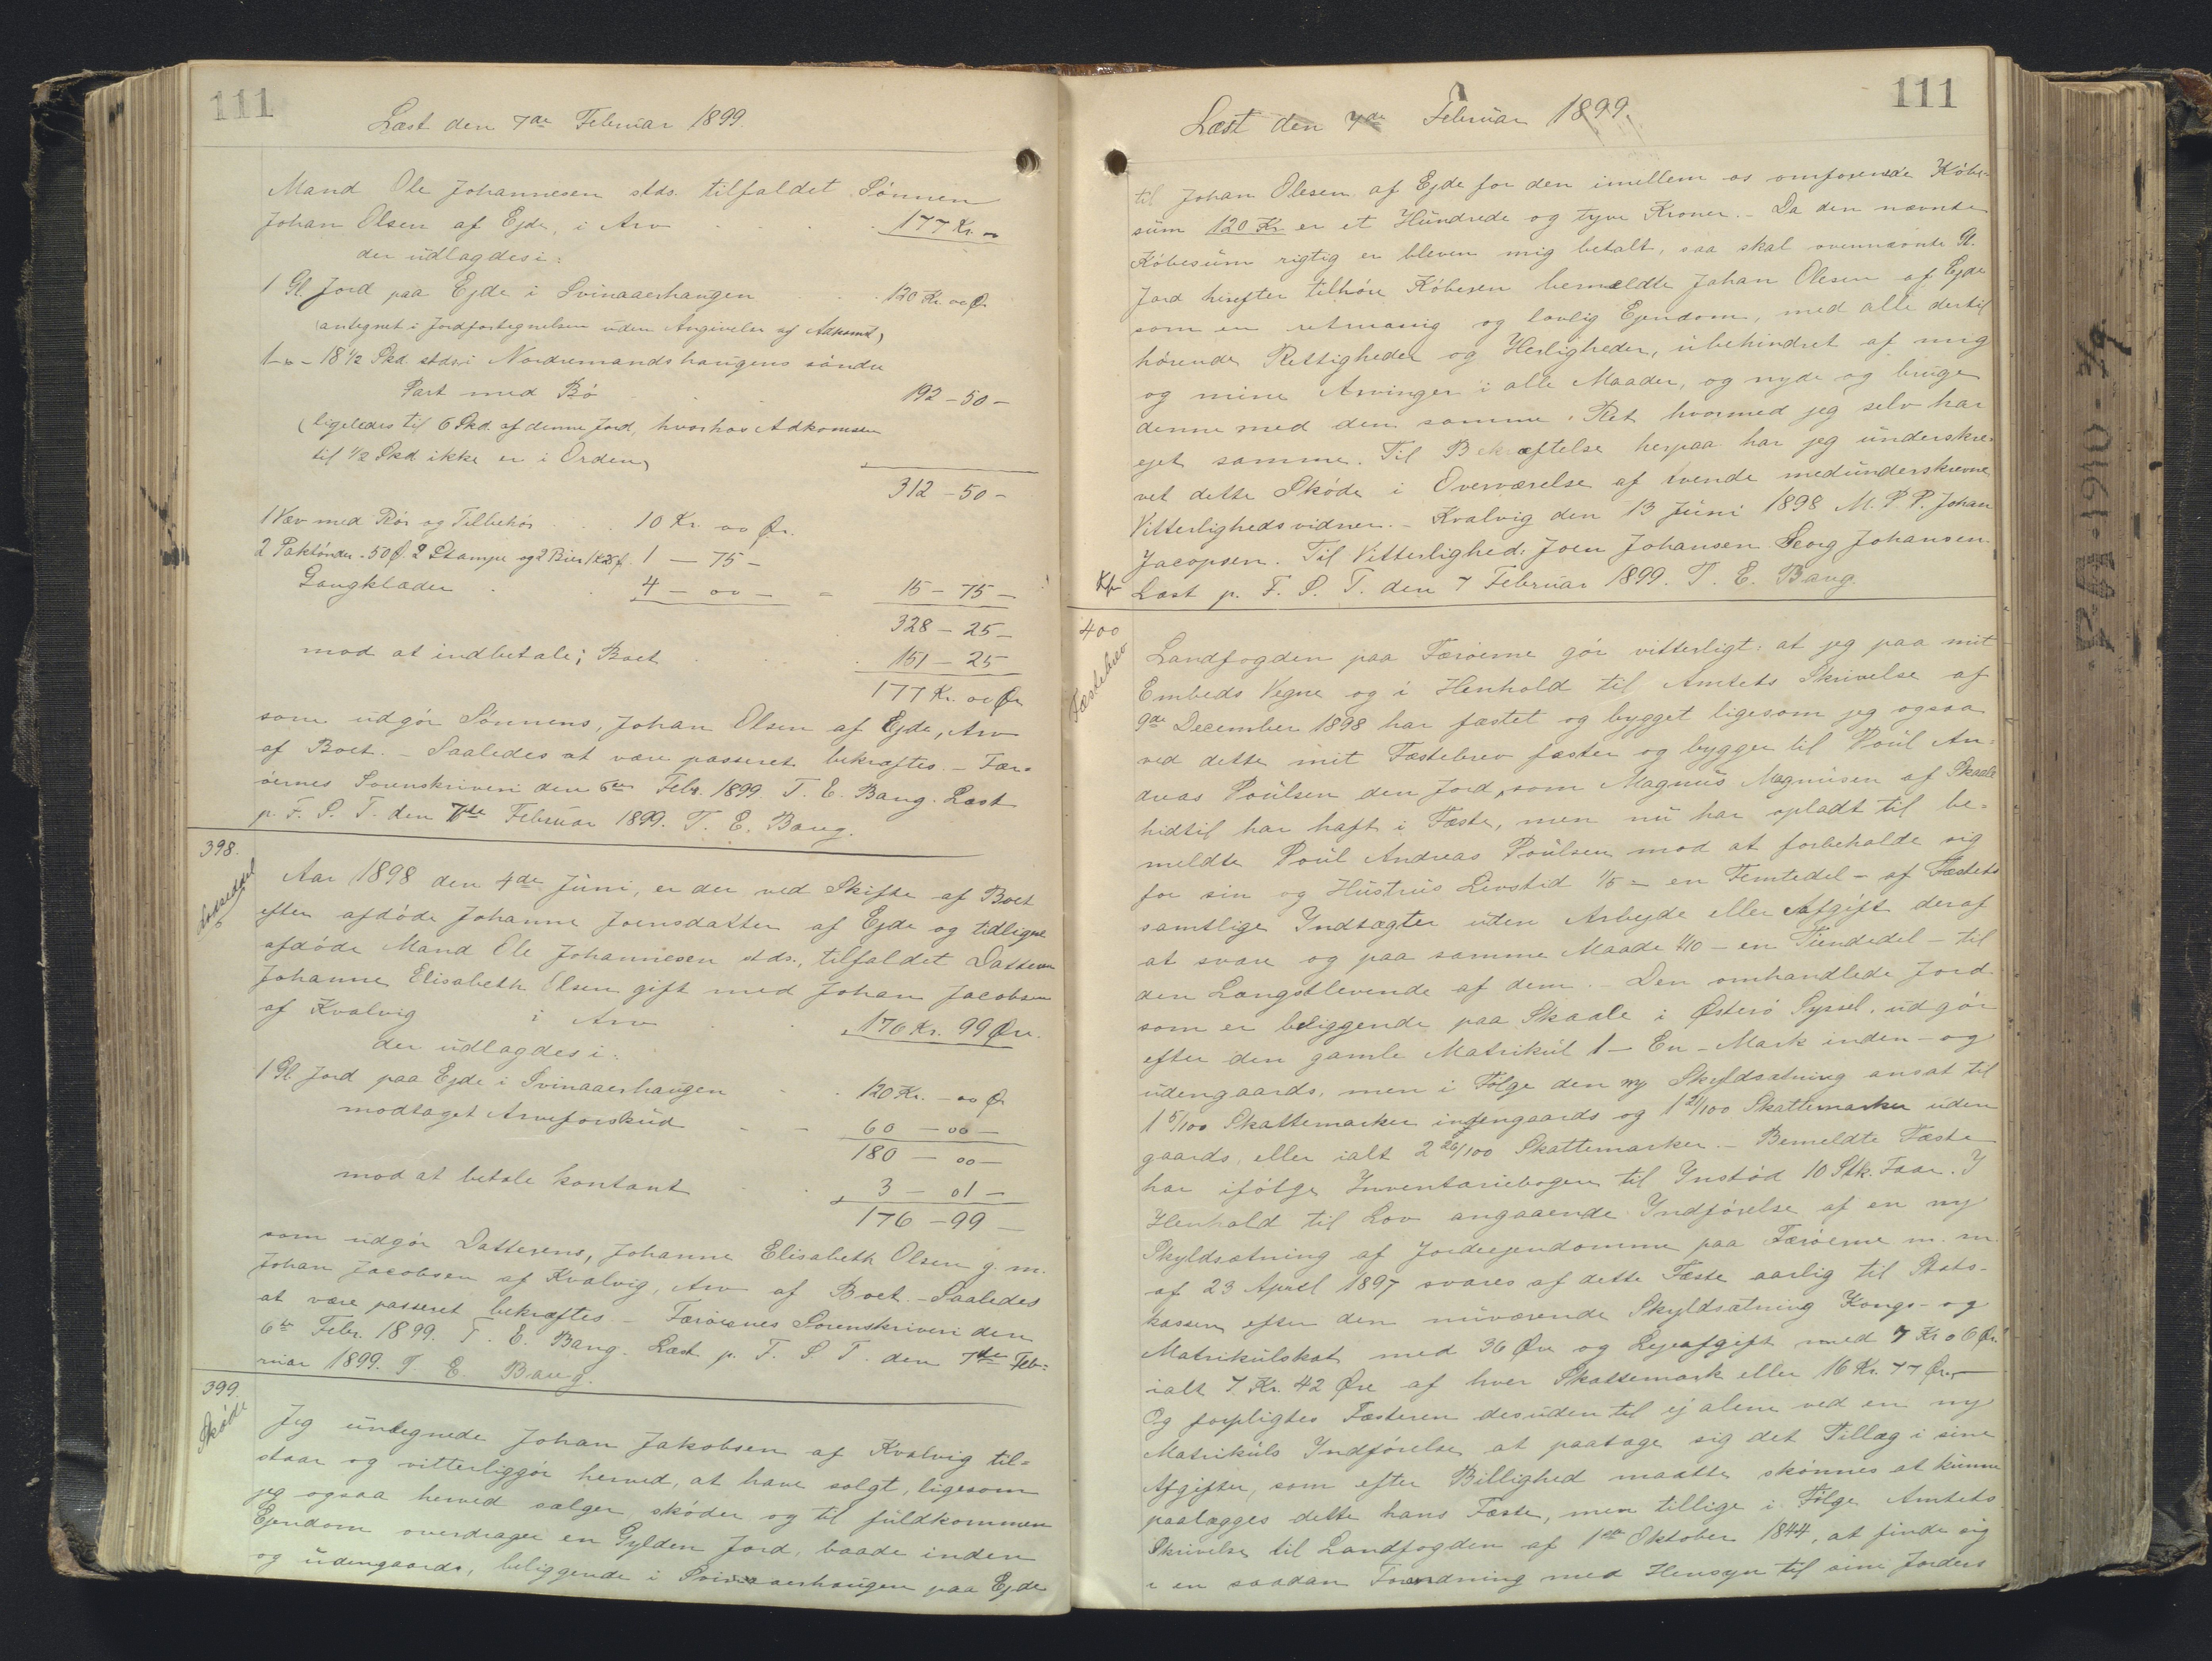 111
Læst den 7de Februar 1899
Mand Ole Johannesen stds. tilfaldet Sønnen
Johan Olsen af Ejde, i Arv 177 Kr. "
der udlagdes i:
1 Gl. Jord paa Ejde i Svinaaerhaugen 120 Kr. oo Ør
(antegnet i Jordfortegnelsen uden Angivelse af Adkomst)
1 - " - 18 1/2 Skd. stds. i Nordremandshaugens søndre
Part med Bø 192 - 50 -
(ligeledes til 6 Skd. af denne Jord, hvorhos Adkomsten
til 1/2 Skd ikke er i Orden)
312 - 50 -
1 Væv med Rør og Tilbehør 10 Kr. oo Ør.
2 Paktønder - 50 Ø. 2 Stampe og 2 Bier 1 K 25 Ø. 1 - 75 -
Gangklæder 4 - oo - = 15 - 75 -
328 - 25 -
mod at indbetale i Boet 151 - 25
177 Kr. oo Ør
som udgør Sønnens, Johan Olsen af Ejde, Arv
af Boet. - Saaledes at være passeret bekræftes. - Fær-
øernes Sorenskriveri den 6te Febr. 1899. T. E. Bang. Læst
p. F. S. T. den 7de Februar 1899. T. E. Bang.
398.
Lodseddel
Aar 1898 den 4de Juni, er der ved Skifte af Boet
efter afdøde Johanne Joensdatter af Ejde og tidligere
afdøde Mand Ole Johannesen stds., tilfaldet Datteren
Johanne Elisabeth Olsen gift med Johan Jacobsen
af Kvalvig i Arv 176 Kr. 99 Øre.
der udlagdes i:
1 Gl. Jord paa Ejde i Svinaaerhaugen 120 Kr. - oo Ør
modtaget Arveforskud 60 - oo -
180 - oo -
mod at betale kontant 3 - 01 -
176 - 99 -
som udgør Datterens, Johanne Elisabeth Olsen g. m.
Johan Jacobsen af Kvalvig, Arv af Boet. - Saaledes
at være passeret bekræftes - Færøernes Sorenskriveri den
6te Febr. 1899. T. E. Bang. Læst p. F. S T. den 7de Feb-
ruar 1899. T. E. Bang.
399.
Skøde
Jeg untegnede Johan Jakobsen af Kvalvig til-
staar og vitterliggør herved, at have solgt, ligesom
jeg ogsaa herved sælger skøder og til fuldkommen
Ejendom overdrager en Gylden Jord, baade inden
og udengaards, beliggende i Svinaaerhaugen paa Ejde
111
Læst den 7de Februar 1899.
til Johan Olesen af Ejde for den imellem os omforenede Købe-
sum 120 Kr. er et Hundrede og tyve Kroner. - Da den nævnte
Købesum rigtig er bleven mig betalt, saa skal ovennævnte Gl.
Jord herefter tilhøre Køberen bemeldte Johan Olesen af Ejde
som en retmæssig og lovlig Ejendom, med alle dertil
hørende Rettigheder og Herligheder, ubehindret af mig
og mine Arvinger i alle Maader, og nyde og bruge
denne med den samme Ret hvormed jeg selv har
ejet samme. Til Bekræftelse herpaa har jeg underskre-
vet dette Skøde i Overværelse af tvende medunderskrevne
Vitterlighedsvidner. - Kvalvig den 13 Juni 1898 M. P. P. Johan
Jacopsen. Til Vitterlighed: Joen Johansen Georg Johansen.
Læst p. F. S. T. den 7 Februar 1899. T. E. Bang.
400
Fæstebrev
Landfogden paa Færøerne gør vitterligt: at jeg paa mit
Embeds Vegne og i Henhold til Amtets Skrivelse af
9de December 1898 har fæstet og bygget ligesom jeg ogsaa
ved dette mit Fæstebrev fæster og bygger til Poul An-
dreas Poulsen den Jord, som Magnus Magnusen af Skaale
hidtil har haft i Fæste, men nu har opladt til be-
meldte Poul Andreas Poulsen mod at forbeholde sig
for sin og Hustrus Livstid 1/5 - en Femtedel - af Fæstets
samtlige Indtægter uden Arbejde eller Afgift deraf
at svare og paa samme Maade 1/10 - en Tiendedel - til
den Længstlevende af dem. - Den omhandlede Jord
som er beliggende paa Skaale i Østerø Syssel, udgør
efter den gamle Matrikul 1 - En - Mark inden - og
udengaards, men i Følge den ny Skyldsætning ansat til
1 5/100 Skattemarker indengaards og 1 21/100 Skattemarker uden
gaards, eller ialt 2 26/100 Skattemarker. - Bemeldte Fæste
har ifølge Inventariebogen til Instød 10 Stk. Faar. I
Henhold til Lov angaaende Indførelse af en ny
Skyldsætning af Jordeejendomme paa Færøerne m. m.
af 23 April 1897 svares af dette Fæste aarlig til Stats-
kassen efter den nuværende Skyldsætning Kongs- og
Matrikulskat med 36 Øre og Lejeafgift med 7 Kr o 6 Ør.
ialt 7 Kr. 42 Øre af hver Skattemark eller 16 Kr. 77 Ør. -
Og forpligtes Fæsteren desuden til ej alene ved en ny
Matrikuls Indførelse at paatage sig det Tillæg i sine
Afgifter, som efter Billighed maatte skønnes at kunne
paalægges dette hans Fæste, men tillige i Følge Amtets
Skrivelse til Landfogden af 1ste Oktober 1844, at finde sig
i en saadan Forandring med Hensyn til sine Jorders